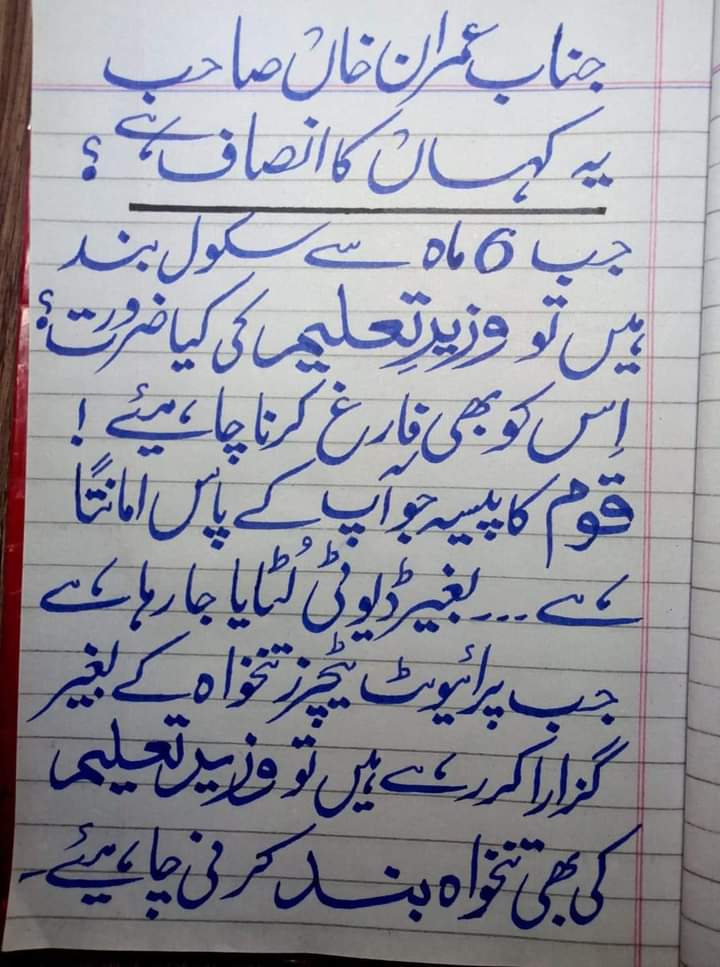 جناب عمران خاں صاحب
یہ کہاں کا انصاف ہے؟
جب 6 ماہ سے سکول بند
ہیں تو وزیرِتعلیم کی کیا ضرورت؟
اِس کو بھی فارغ کرنا چاہیئے!
قوم کا پیسہ جو آپ کے پاس امانتًا
ہے... بغیر ڈیوٹی لُٹایا جا رہا ہے
جب پرائیوٹ ٹیچرز تنخواہ کے بغیر
گزارا کر رہے ہیں تو وزیرِتعلیم
کی بھی تنخواہ بند کرنی چاہیئے۔